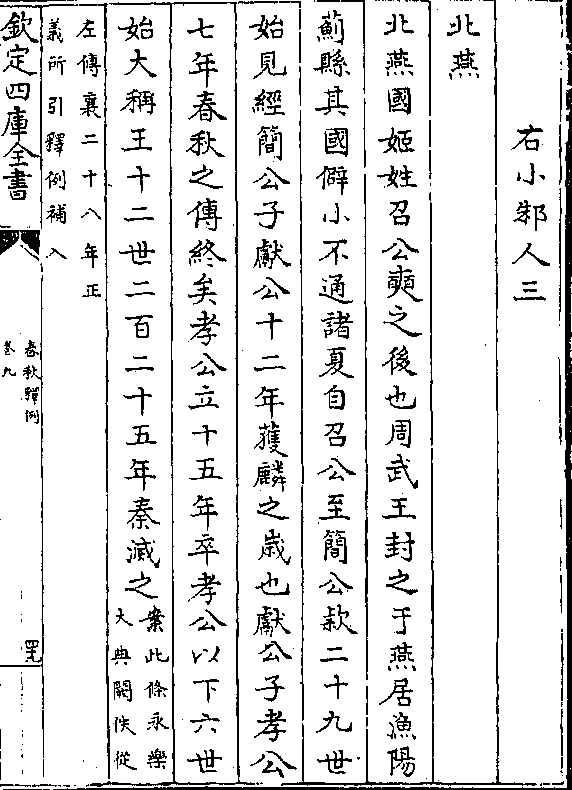 右小邾人三
北燕
北燕國姬姓召公奭之後也周武王封之于燕居漁陽
薊縣其國僻小不通諸夏自召公至簡公款二十九世
始見經簡公子獻公十二年獲麟之歲也獻公子孝公
七年春秋之傳終矣孝公立十五年卒孝公以下六世
始大稱王十二世二百二十五年秦滅之
案此條永樂
大典闕佚從
左傳襄二十八年正
義所引釋例補入
欽定四庫全書
春秋釋例
卷九